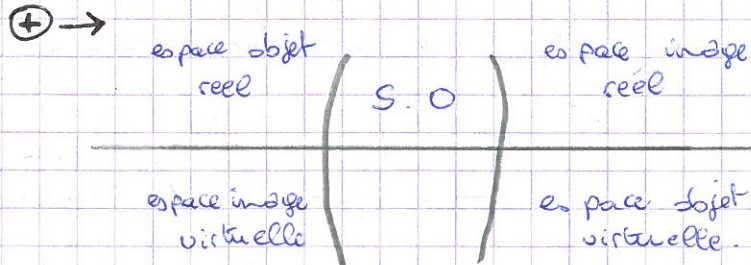 +
espace objet
reel
S. O
espace image
réel
espace image
virtuelle
espace objet
virtuelle.